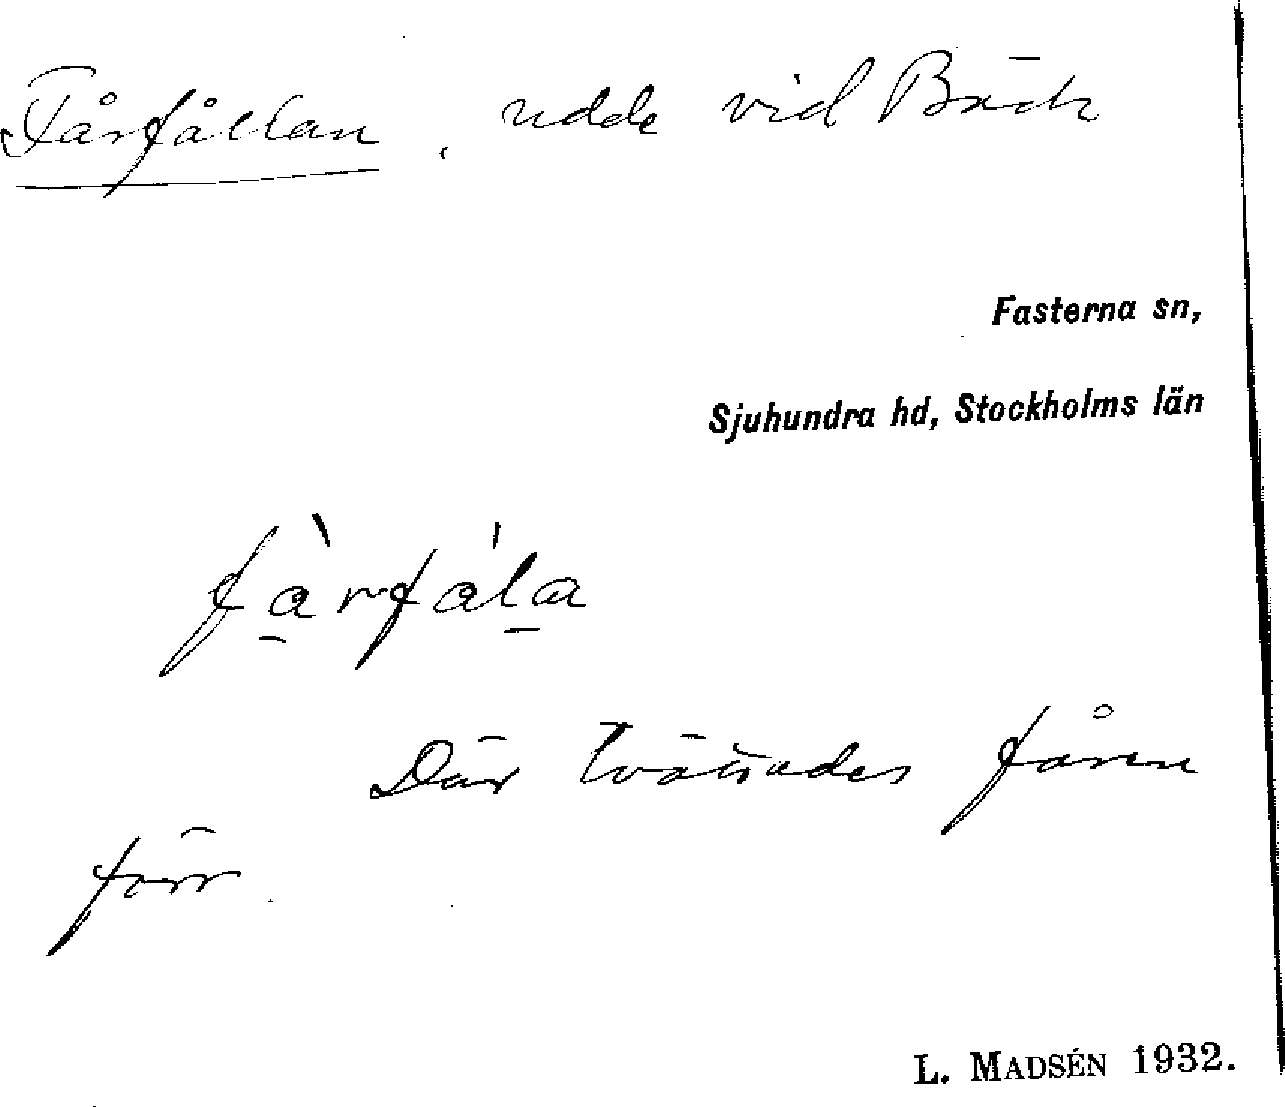 Fårfållan, udde vid Bäck
Fasterna sn,
Sjuhundra hd, Stockholms län
Där tvättades fåren
förr.
L. MADSÉN 1932.